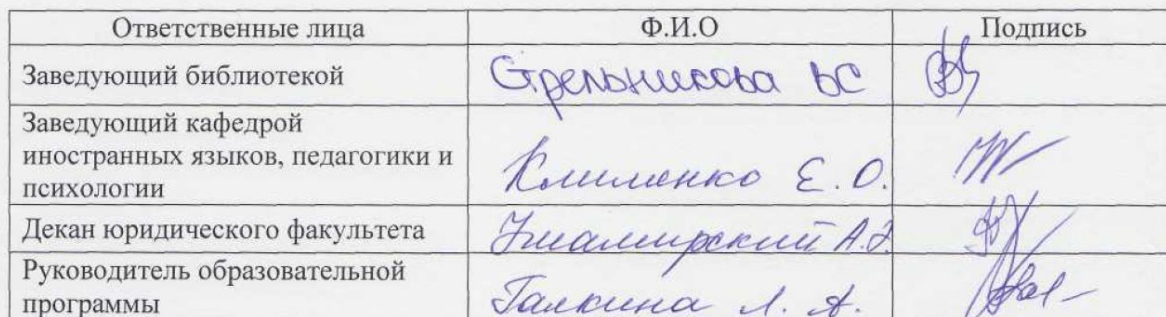 Ответственные лица Ф.И.О Подпись
Заведующий библиотекой Стрельникова ВС
Заведующий кафедрой
иностранных языков, педагогики и
психологии Клименко Е.О.
Декан юридического факультета
Руководитель образовательной
программы Галкина Л. А.